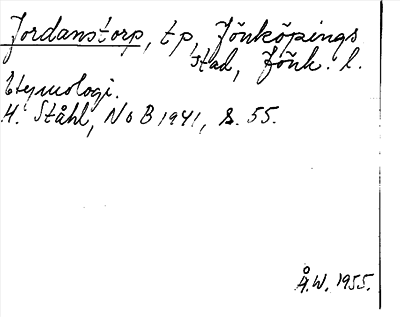 Jordanstorp, t p, Jönköpings
stad, Jönk. l.
Etymologi.
H. Ståhl, NoB 1941, s. 55.
Å.W. 1955.